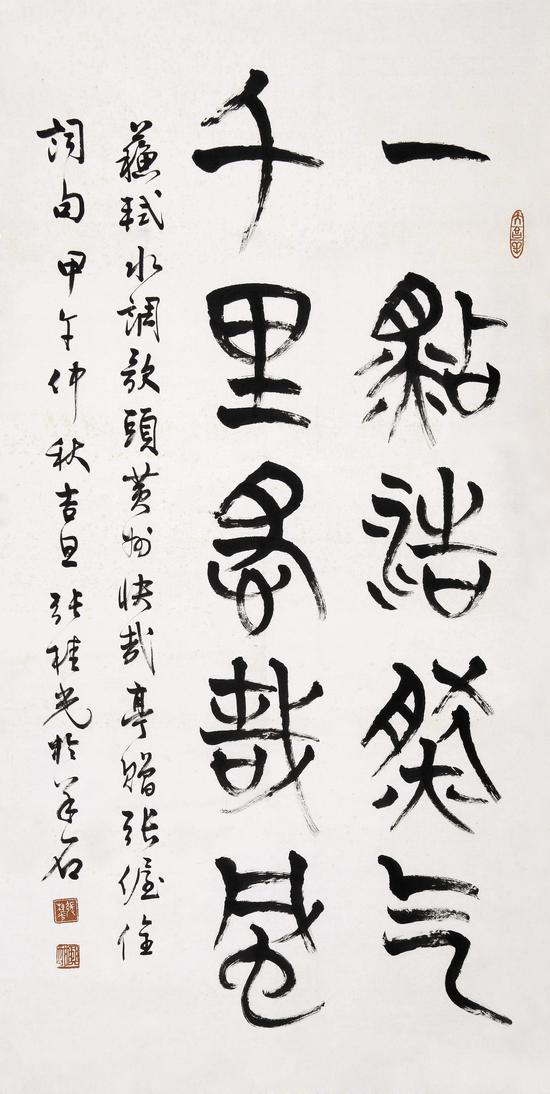 一點浩然气
千里快哉風
蘇軾水調歌頭黄州快哉亭贈張偓佺
詞句甲午仲秋吉旦張桂光於羊石